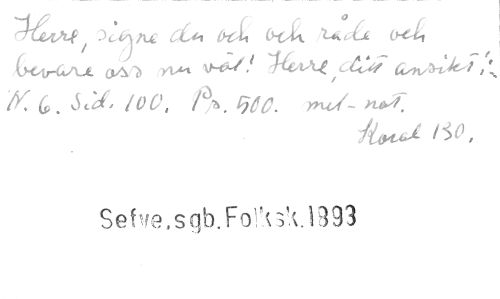 Herre, signe du och och råde och
bevare oss nu väl! Herre, ditt ansikt:-
N. 6. Sid. 100. Ps. 500. mel-not.
Koral 130.
Sefve, sgb. Folksk. 1893